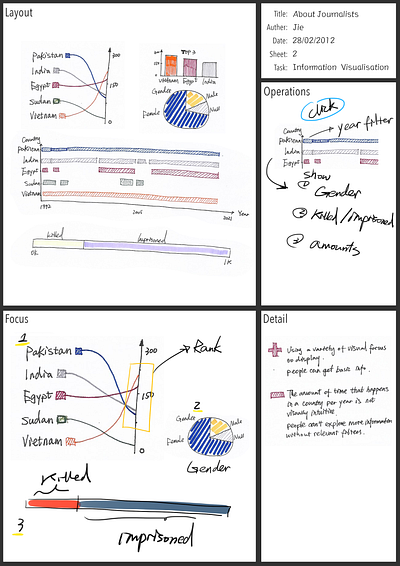 Layout
Title: About Journalists
Author: Jie
Date: 28/02/2012
Sheet: 2
Task: Information Visualisation
Pakistan
India
Egypt
Sudan
Vietnam
300
150
0
Top 3
Vietnam
Egypt
India
Gender
Male
Null
Female
Country
Pakistan
India
Egypt
Sudan
Vietnam
1992
2005
2021
Year
killed
Imprisoned
0k
1k
Operations
click
Country
year filter
Pakistan
India
Egypt
show
① Gender
② killed/imprisoned
③ amounts
Focus
1
Pakistan
India
Egypt
Sudan
Vietnam
300
150
0
Rank
2
Gender
Male
Null
Female
Gender
Killed
3
imprisoned
Detail
Using a variety of visual focus
on display.
people can get basic info.
The amount of time that happens
in a country per year is not
visually intuitive.
people can't explore more information
without relevant filters.